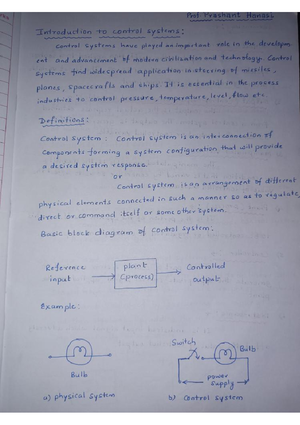 Prof Prashant Honasi
Introduction to control systems:
Control systems have played an important role in the developm
ent and advancement of modern civilization and technology. Control
systems find widespread application in steering of missiles,
planes, spacecrafts and ships. It is essential in the process
industries to control pressure, temperature, level, flow etc.
Definitions:
Control system: Control system is an interconnection of
components forming a system configuration, that will provide
a desired system response.
or
Control system is an arrangement of different
physical elements connected in such a manner so as to regulate,
direct or command itself or some other system.
Basic block diagram of control system:
Reference input
plant (process)
Controlled output
Example:
Bulb
a) physical system
Switch
Bulb
power supply
b) Control system